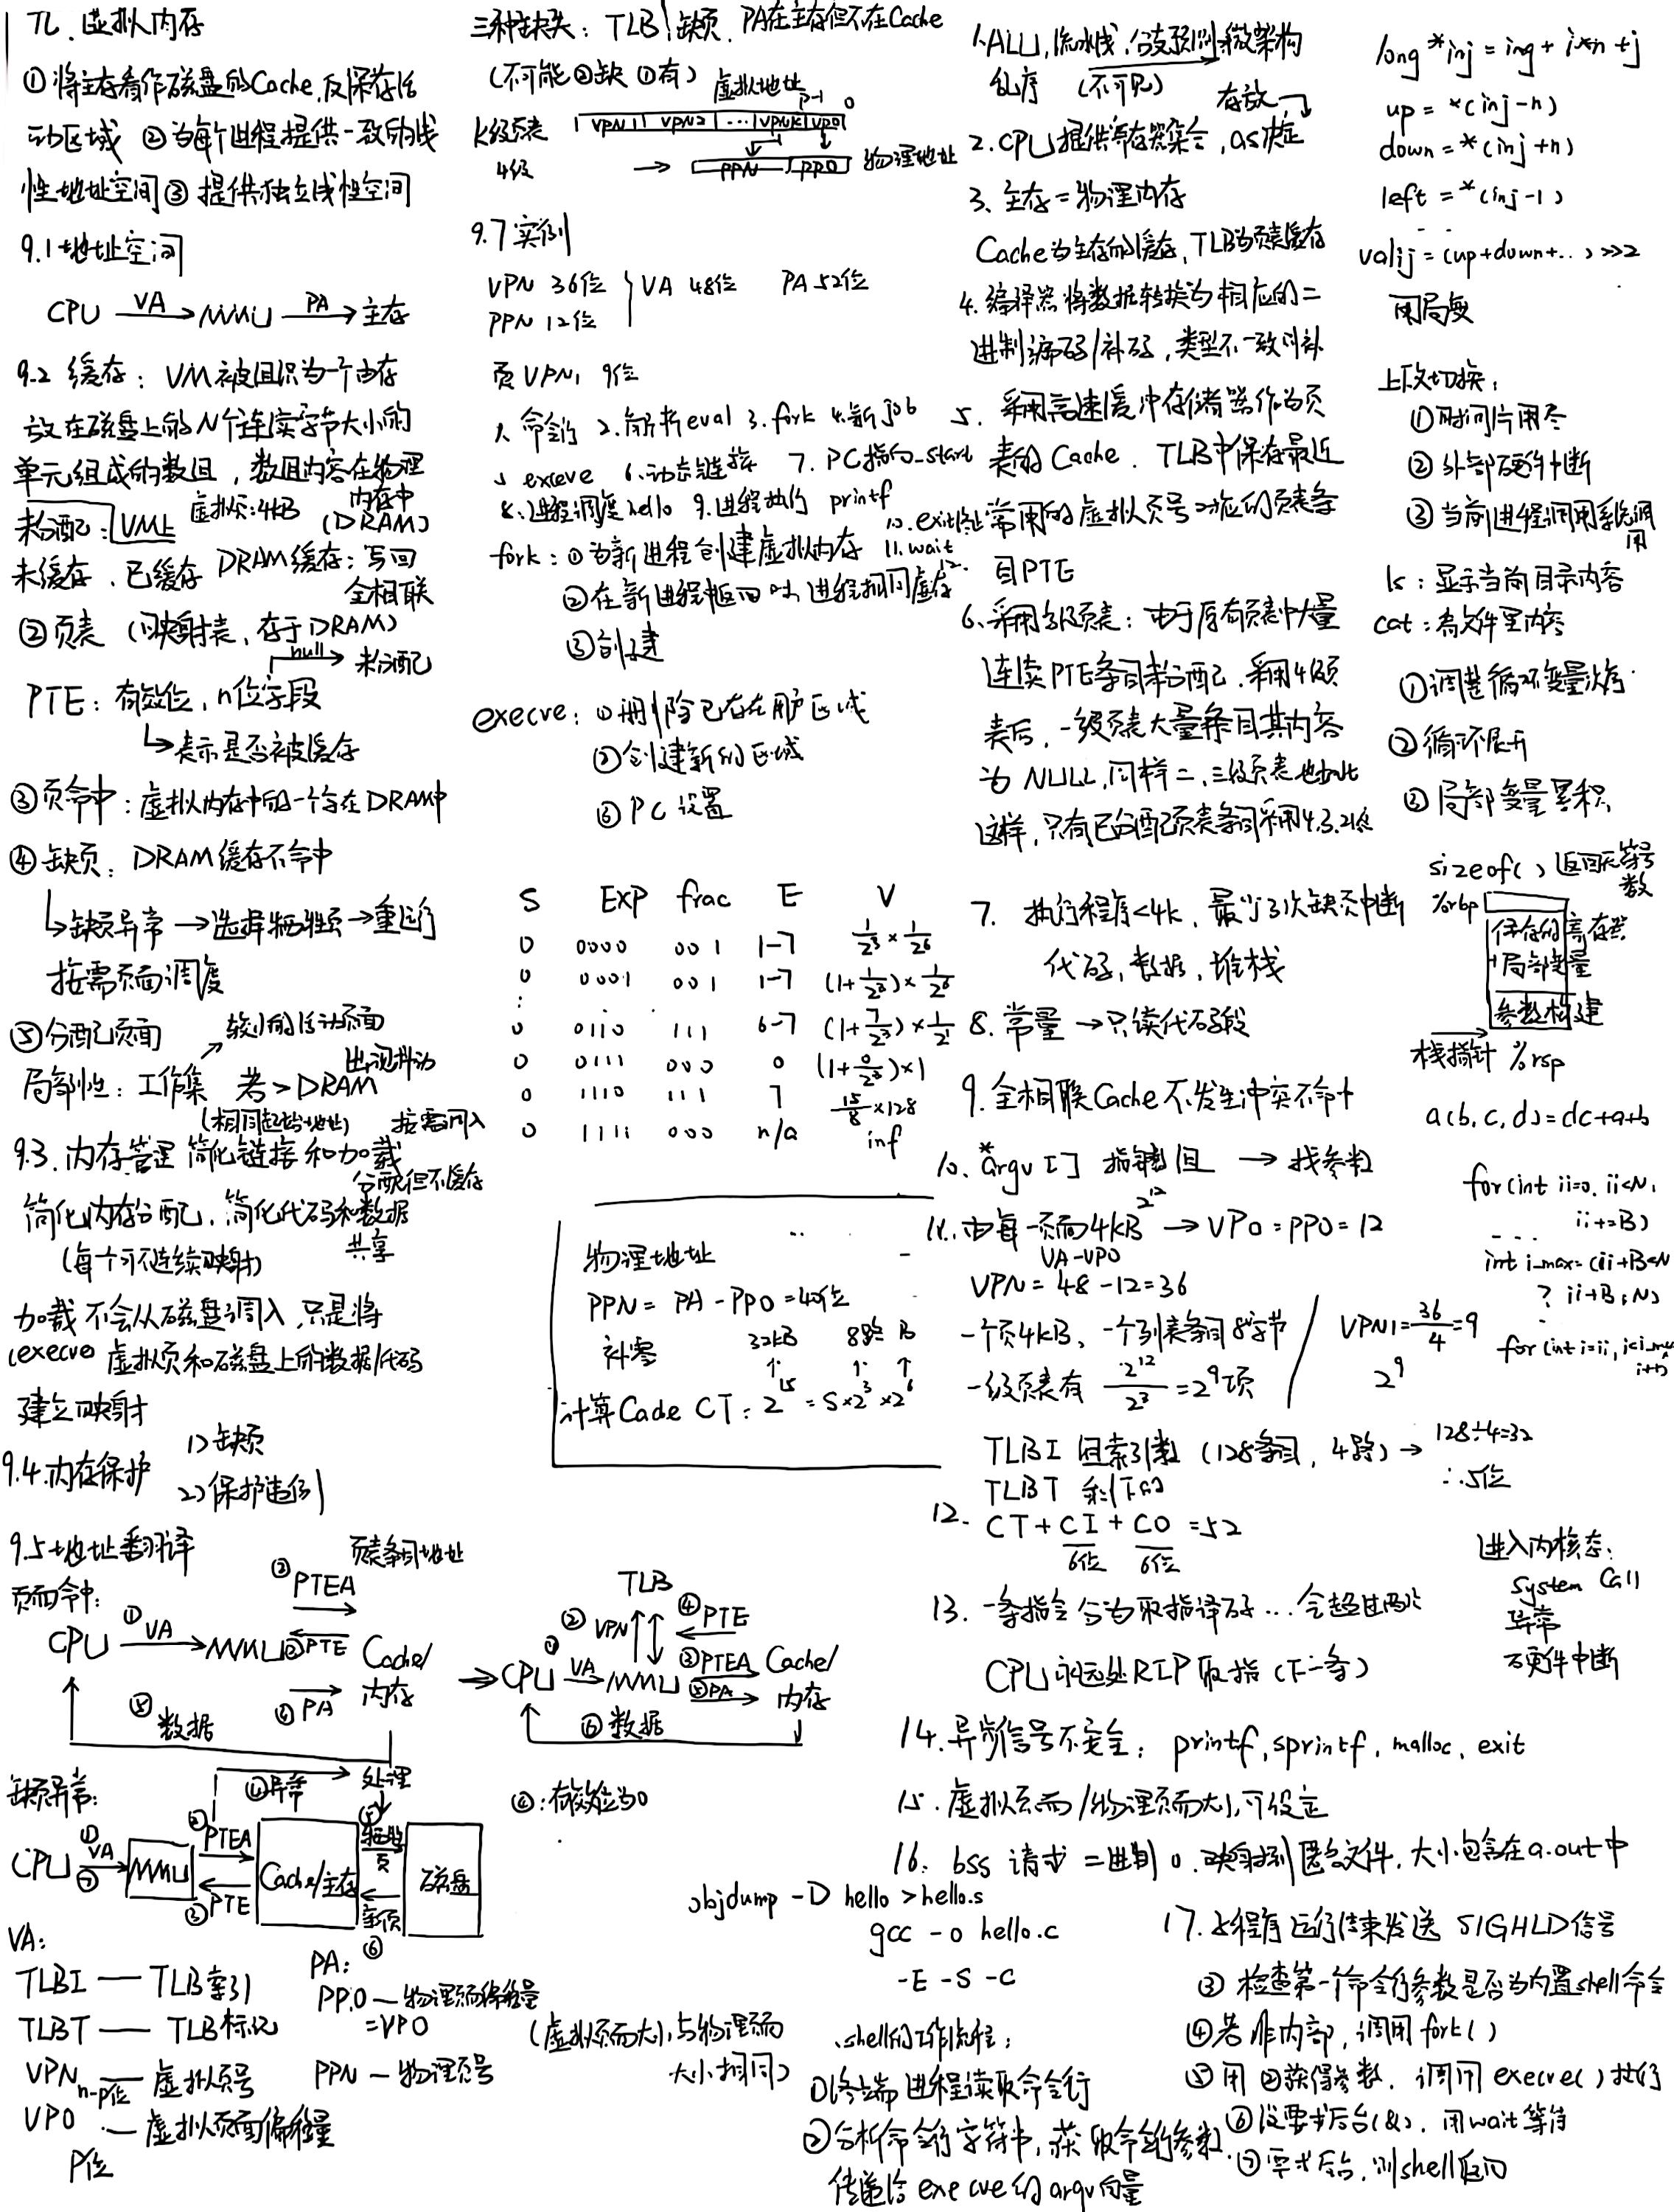 九、虚拟内存
① 将主存看作磁盘的Cache,只保存活
动区域 ② 为每个进程提供一致的线
性地址空间 ③ 提供独立线性空间
9.1 地址空间
CPU VA→ MMU PA→ 主存
9.2 缓存: VM被组织为一个由存
放在磁盘上的N个连续字节大小的
单元组成的数组,数组内容在物理
内存中
未分配: VM上 虚拟页:4kB (DRAM)
未缓存、已缓存 DRAM缓存:写回
全相联
② 页表 (映射表,存于DRAM)
null→未分配
PTE: 有效位,n位字段
↳表示是否被缓存
③ 页命中: 虚拟内存中的一个字在DRAM中
④ 缺页: DRAM缓存不命中
↳缺页异常→选择牺牲页→重运行
按需页面调度
⑤ 分配页面 较小的活动页面
出现抖动
局部性: 工作集 若>DRAM
(相同起始地址) 按需调入
9.3. 内存管理 简化链接和加载
分配但不缓存
简化内存分配, 简化代码和数据
共享
(每个可不连续映射)
加载 不会从磁盘调入,只是将
(execve) 虚拟页和磁盘上的数据/代码
建立映射
9.4. 内存保护 1) 缺页
2) 保护违例
9.5 地址翻译 页表条目地址
页面命中: ② PTEA
CPU ① VA→ MMU ③ PTE Cache/
内存
④ PA
⑤ 数据
缺页异常: ④ 异常 处理
CPU ① VA ⑦ MMU ② PTEA ③ PTE Cache/主存 ⑤ 牺牲页 新页 ⑥ 磁盘
VA:
TLBI — TLB索引
TLBT — TLB标记
VPN — 虚拟页号
n-p位
VPO — 虚拟页面偏移量
P位
PA:
PPO — 物理页面偏移量
=VPO
PPN — 物理页号
(虚拟页面大小与物理页面
大小相同)
三种缺失: TLB、缺页、PA在主存但不在Cache
(不可能②缺 ①有) 虚拟地址
p-1 0
K级页表 VPN1 VPN2 ... VPNK VPO
4级 → PPN PPO 物理地址
9.7 实例
VPN 36位 VA 48位 PA 52位
PPN 12位
页 VPN1 9位
1. 命令行 2. 解析eval 3. fork 4. 新job
5 execve 6. 动态链接 7. PC指向_start
8. 进程调度hello 9. 进程执行 printf
10. exit终止
11. wait
fork: ① 为新进程创建虚拟内存
② 在新进程中返回时,进程相同虚存
③ 创建
execve: ① 删除已存在用户区域
② 创建新的区域
③ PC 设置
S EXP frac E V
0 0000 001 1-7 1/2³ × 1/2⁶
0 0001 001 1-7 (1+1/2³)×1/2⁶
0 0110 111 6-7 (1+7/2³)×1/2
0 0111 000 0 (1+0/2³)×1
0 1110 111 7 15/8×128
0 1111 000 n/a inf
物理地址
PPN = PA - PPO = 40位
补零 32kB 8路 B
计算Cache CT: 2¹⁵ = S×2³×2⁶
TLB
② VPN ④ PTE
CPU ① VA→ MMU ③ PTEA Cache/
⑤ PA 内存
⑥ 数据
④: 有效位为0
objdump -D hello > hello.s
gcc -o hello.c
-E -S -C
1. ALU, 流水线, 分支预测→微架构
乱序 (不可见)
存放
2. CPU提供寄存器集合, as决定
3. 主存=物理内存
Cache为主存的缓存, TLB为页表缓存
4. 编译器将数据转换为相应的二
进制编码/补码, 类型不一致时补
5. 采用高速缓冲存储器作为页
表的Cache. TLB中保存最近
常用的虚拟页号对应的页表条
目PTE
6. 采用多级页表: 由于原有页表中大量
连续PTE条目未分配. 采用4级页
表后, 一级页表大量条目其内容
为 NULL, 同样二、三级页表也如此
这样, 只有已分配页表条目采用4.3.2级
7. 执行程序<4k, 最少3次缺页中断
代码, 数据, 堆栈
8. 常量 → 只读代码段
9. 全相联Cache不发生冲突不命中
10. *argv[] 指针数组 → 找参数
11. 由每一页面4kB 2¹² → VPO = PPO = 12
VA-VPO
VPN = 48 -12 = 36
一个页4kB、一个列表条目8字节
一级页表有 2¹²/2³ = 2⁹项
VPN1 = 36/4 = 9
2⁹
TLBI 组索引数 (128条目, 4路) → 128÷4=32
∴5位
TLBT 剩下的
12. CT + CI + CO = 52
6位 6位
13. 一条指令分为取指译码...会超过两次
CPU永远处RIP取指 (下一条)
14. 异步信号不安全: printf, sprintf, malloc, exit
15. 虚拟页面/物理页面大小可设定
16. bss 请求二进制 0. 映射到匿名文件. 大小包含在a.out中
17. 子程序运行结束发送 SIGHLD信号
shell的工作流程:
① 终端进程读取命令行
② 分析命令行字符串, 获取命令行参数
传递给 execve的argv向量
③ 检查第一个命令行参数是否为内置shell命令
④ 若非内部, 调用fork()
⑤ 用②获得参数, 调用 execve()执行
⑥ 没要求后台(&), 用wait等待
⑦ 要求后台, 则shell返回
long *inj = ing + i*n + j
up = *(inj-n)
down = *(inj+n)
left = *(inj-1)
valij = (up+down+...) >>>2
用局变
上下文切换:
① 时间片用尽
② 外部硬件中断
③ 当前进程调用系统调
用
ls: 显示当前目录内容
cat: 看文件里内容
① 调整循环变量次序
② 循环展开
③ 局部变量累积
sizeof() 返回无符号
数
%rbp
保存的寄存器
+局部变量
参数构建
栈指针 %rsp
a(b,c,d) = dc+a+b
for(int ii=0. ii<N.
ii+=B)
int i_max = (ii+B<N
? ii+B:N)
for (int i=ii, i<i_max
i++)
进入内核态:
System Call
异常
硬件中断